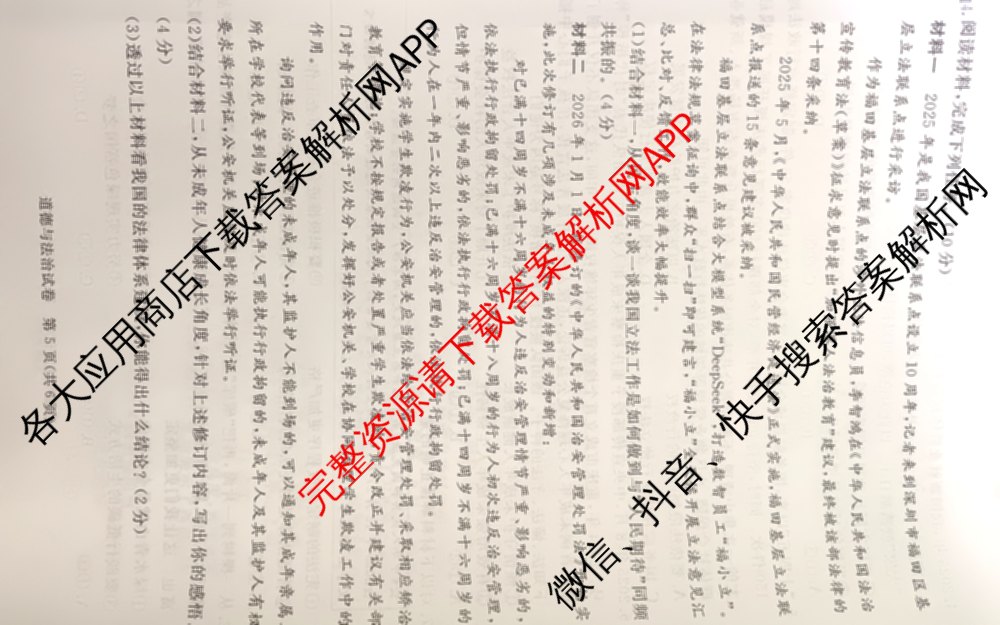 14.阅读材料,完成下列
材料一 2025年是我国 联系点设立10周年,记者来到深圳市福田区基
层立法联系点进行采访。
作为福田基层立法联系点的 信息员,牟智鸿在《中华人民共和国法治
宣传教育法(草案)》征求意见时提出 法治教育”建议,最终被该部法律的
第十四条采纳。
2025年5月,《中华人民共和国民营经济 》正式实施,福田基层立法联
系点报送的15条意见建议被采纳。
福田基层立法联系点结合大模型系统“DeepSeek” 打造数智员工“福小立”。
在法律法规草案征询中,群众“扫一扫”即可建言,“福小立” 开展立法意见汇
总、比对、反馈 效能效率大幅提升。
(1)结合材料一,从 角度,谈一谈我国立法工作是如何做到与 民期待”同频
共振的。(4分)
材料二 2026年1月1日 订的《中华人民共和国治安管理处罚法 实
施,此次修订有几项涉及未成年 益的特别变动和新增:
对已满十四周岁不满十六周岁 为人违反治安管理情节严重、影响恶劣的,
依法执行行政拘留处罚;已满十六周岁 十八周岁的行为人初次违反治安管理,
但情节严重、影响恶劣的,依法执行行政 处罚;已满十四周岁不满十六周岁的
为人在一年内二次以上违反治安管理的,依 行政拘留处罚。
实施学生欺凌行为,公安机关应当依法 安管理处罚、采取相应矫治
教育 学校不按规定报告或者处置严重学生欺 令改正并建议有关部
门对责任 法予以处分,发挥好公安机关、学校在协同 学生欺凌工作中的
作用。
询问违反治 的未成年人,其监护人不能到场的,可以通知其成年亲属、
所在学校代表等到场 年人可能执行行政拘留的,未成年人及其监护人有权
要求举行听证,公安机关 时依法举行听证。
(2)结合材料二,从未成年人 康成长”角度,针对上述修订内容,写出你的感悟。
(4分)
(3)透过以上材料看我国的法律体系 能得出什么结论?(2分)
道德与法治试卷 第5页(共6
各大应用商店下载答案解析网APP
完整资源请下载答案解析网APP
微信、抖音、快手搜索答案解析网